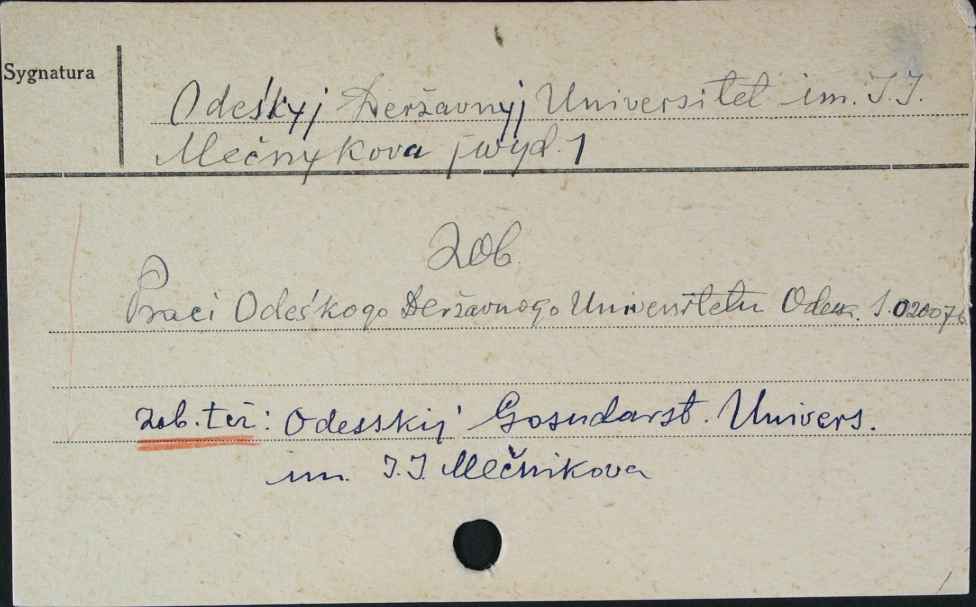 Sygnatura
Odeśkyj Deržavnyj Universitet im. I.I.
Mečnykova [wyd.]
zob.
Praci Odeśkogo Deržavnogo Universitetu Odessa. S. 020076
zob. też: Odesskij Gosudarst. Univers.
im. I.I. Mečnikova